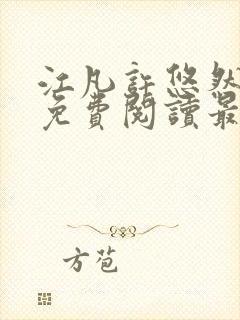 江凡許悠然
免費閱讀最
方苞